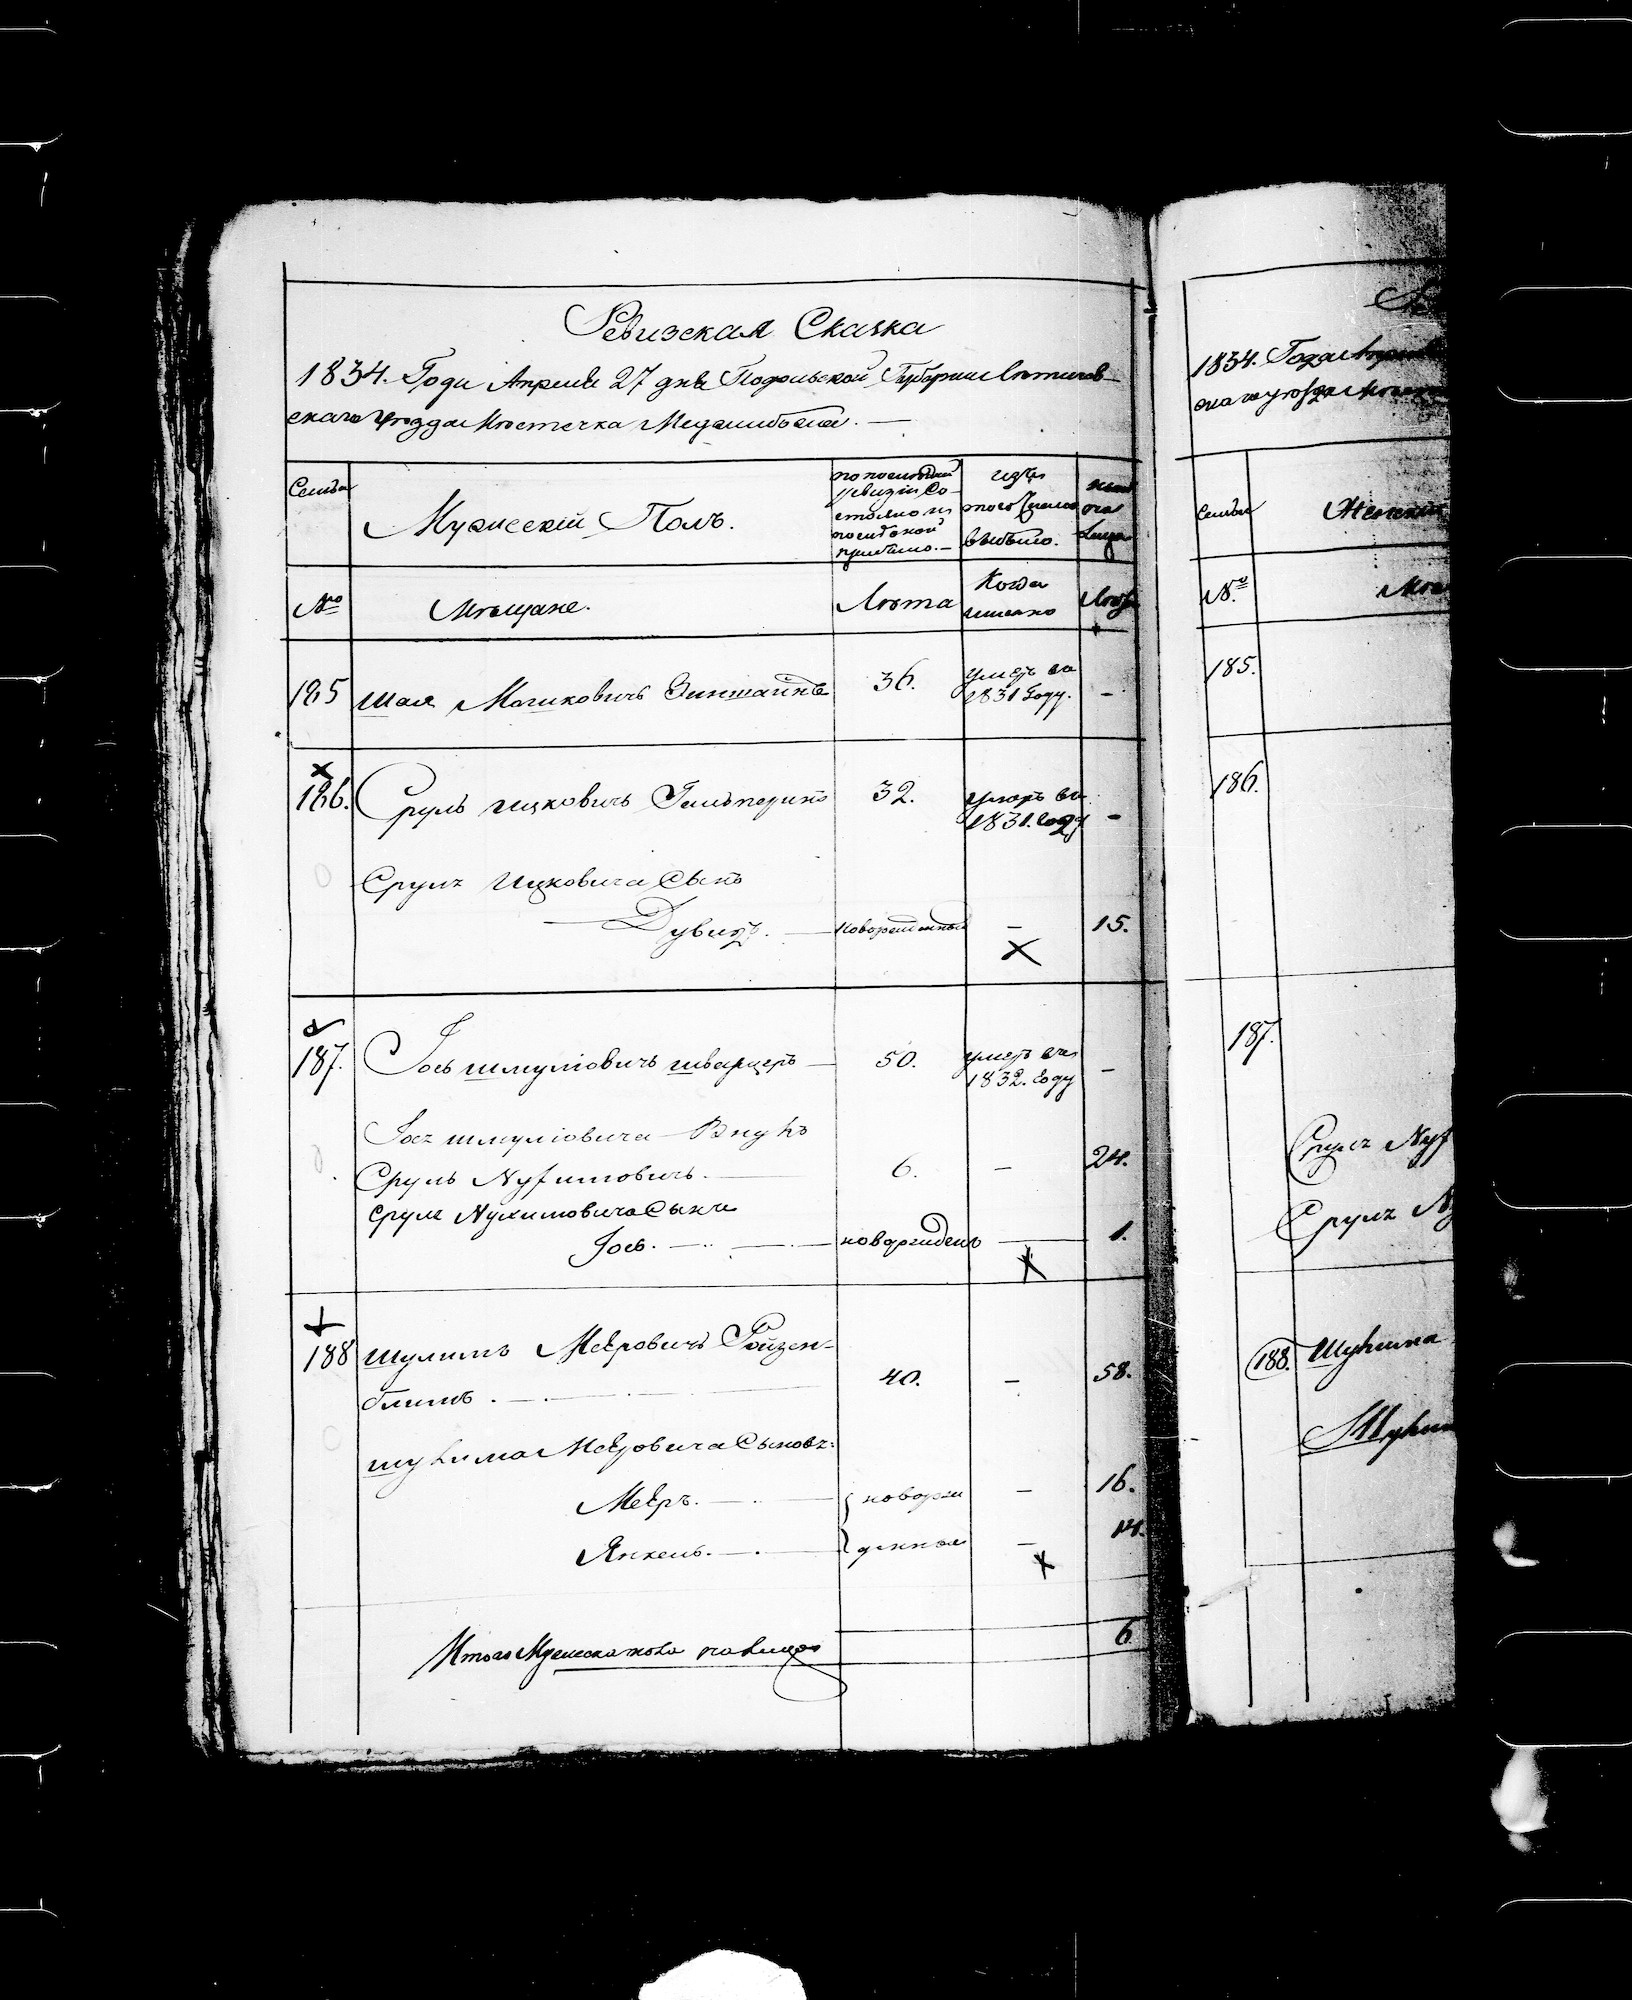 Ревизская Сказка
1834. Года Апреля 27 дня Подольской Губернии Летичев-
скаго уезда Местечка Меджибожа. —
Семьи
Мужеский Полъ.
по последней
ревизіи Со-
стояло и
после оной
прибыло. —
изъ
того числа
выбыло.
ныне
на
лицо
№
Мещане.
Лета
Когда
именно
Лета
185
Шая Мошковичъ Зинштайнъ
36.
умеръ въ
1831 Году.
-
186.
Сруль Ицковичъ Гальперинъ
32.
умеръ въ
1831. году
-
Сруля Ицковича Сынъ
Дувидъ. —
новорожденный
-
15.
187.
Іось Шмуліовичъ Шварцеръ —
50.
умеръ въ
1832. Году
-
Іося Шмуліовича Внукъ
Сруль Нухимовичъ. —
6.
-
24.
Сруля Нухимовича Сынъ
Іось. —
новорожденъ
1.
188
Шулимъ Меѣровичъ Ройзен-
блитъ. —
40.
-
58.
Шулима Меѣровича Сыновья:
Меѣръ. —
новорож
-
16.
Янкель. —
денные
-
14.
Итого Мужеска пола на лицо
6
1834. Года Апреля
скаго уезда Мест
Семьи
Женский
№
Ме
185.
186.
187.
Сруля Нух
Сруля Н
188.
Шулима
Шулим